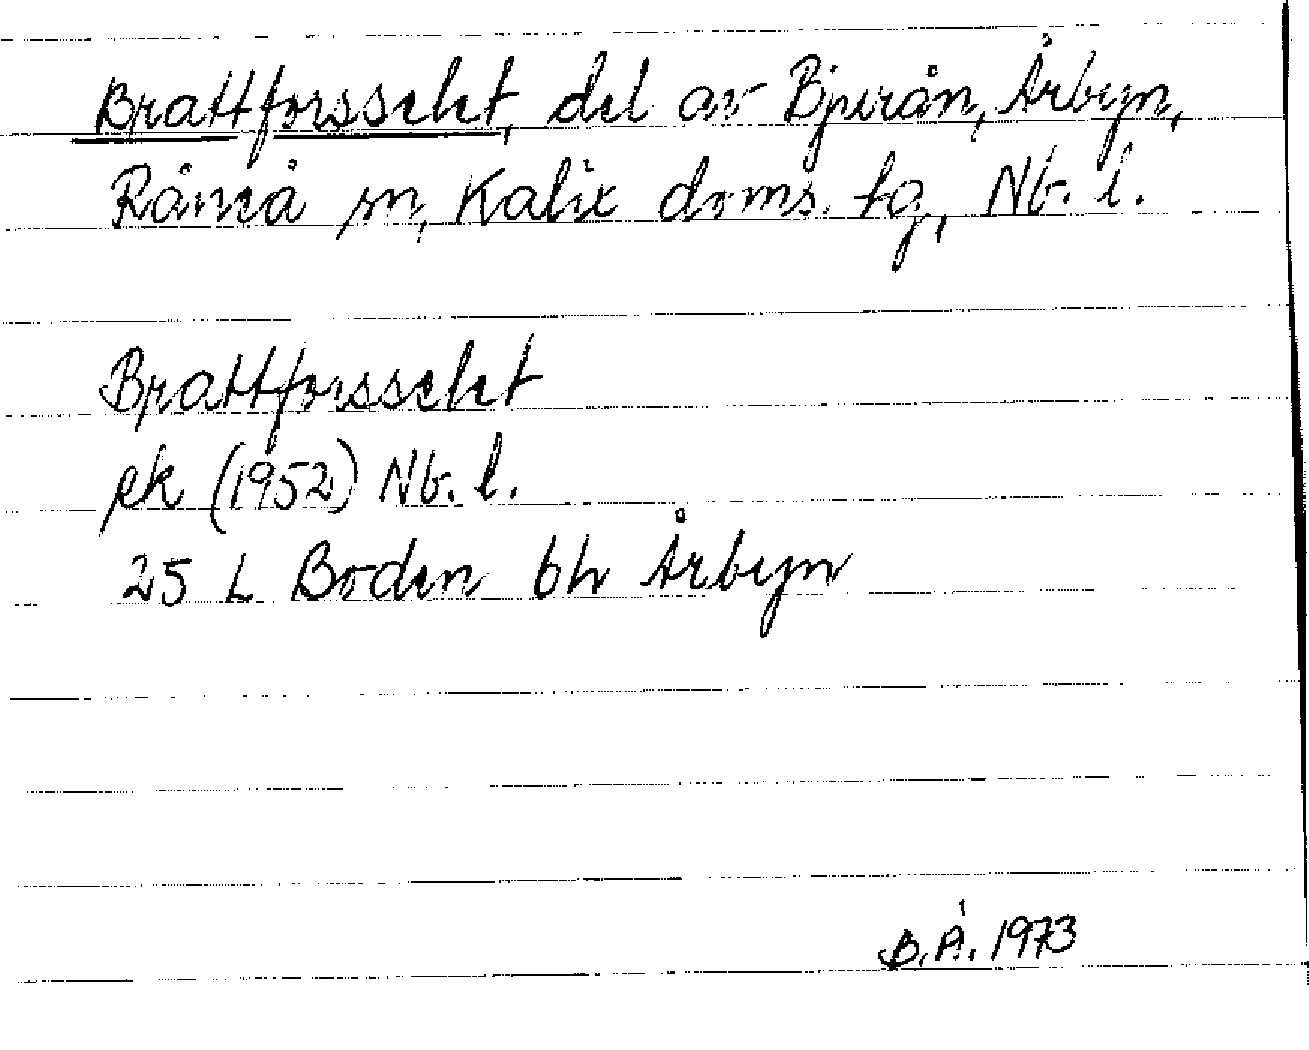 Brattforsselet, del av Bjurån, Årbyn,
Råneå sn, Kalix doms. tg, Nb. l.
Brattforsselet
ek (1952) Nb. l.
25 L Boden bh Årbyn
B.Å. 1973